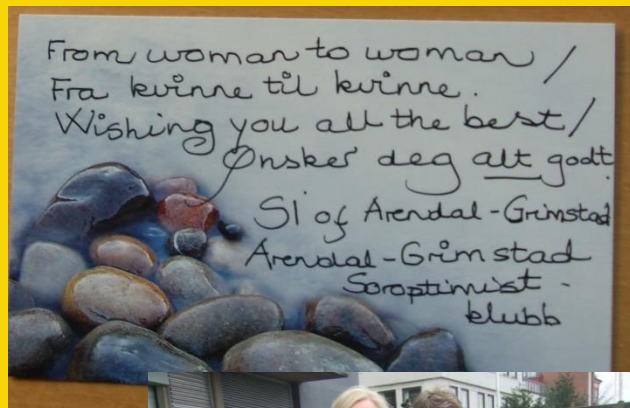 From woman to woman /
Fra kvinne til kvinne.
Wishing you all the best /
Ønsker deg alt godt.
SI of Arendal-Grimstad
Arendal-Grimstad
Soroptimist-
klubb